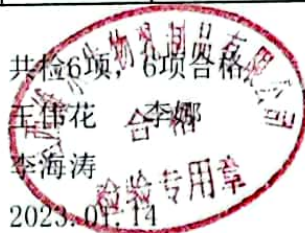 共检6项，6项合格
王伟花 李娜
李海涛
2023.01.14
生物乳制品有限公司
合格
检验专用章